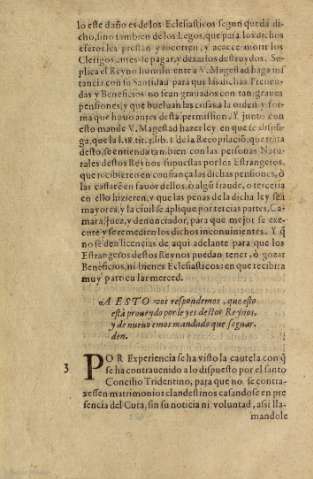 lo este daño es de los Eclesiasticos segun queda di-
cho, sino tambien de los Legos, que para los dichos
efetos les prestan y socorren, y acaece morir los
Clerigos antes de pagar, y dexarlos destruydos. Su-
plica el Reyno humilmente a V. Magestad haga ins-
tancia con su Santidad para que las dichas Prebendas
y Beneficios no sean gravados con tan graves
pensiones, y que buelvan las cosas a la orden y for-
ma que huvo antes desta permission. Y junto con
esto mande V. Magestad hazer ley en que se dispon-
ga, que la l. 18. tit. 3. lib. 1. de la Recopilació que trata
desto, se entienda tambien con las personas Natu-
rales destos Reynos supuestas por los Estrangeros,
que recibieren en confiança las dichas pensiones, ò
las castaré en favor dellos, ò algũ fraude, o terceria
en ello hizieren, y que las penas de la dicha ley sea
mayores, y la civil se aplique por tercias partes, Ca-
mara, juez, y denunciador, para que mejor se exe-
cute y se remedien los dichos inconuinientes. Y q̃
no se den licencias de aqui adelante para que los
Estrangeros destos Reynos puedan tener, ò gozar
Beneficios, ni bienes Eclesiasticos: en que recibira
muy particular merced.
A ESTO vos respondemos, que esto
està proueydo por leyes destos Reynos,
y de nueuo emos mandado que se guar-
den.
3 POR Experiencia se ha visto la cautela con q̃
se ha contrauenido a lo dispuesto por el santo
Concilio Tridentino, para que no se contra-
xessen matrimonios clandestinos casandose en pre
sencia del Cura, sin su noticia ni voluntad, assi lla-
mandole